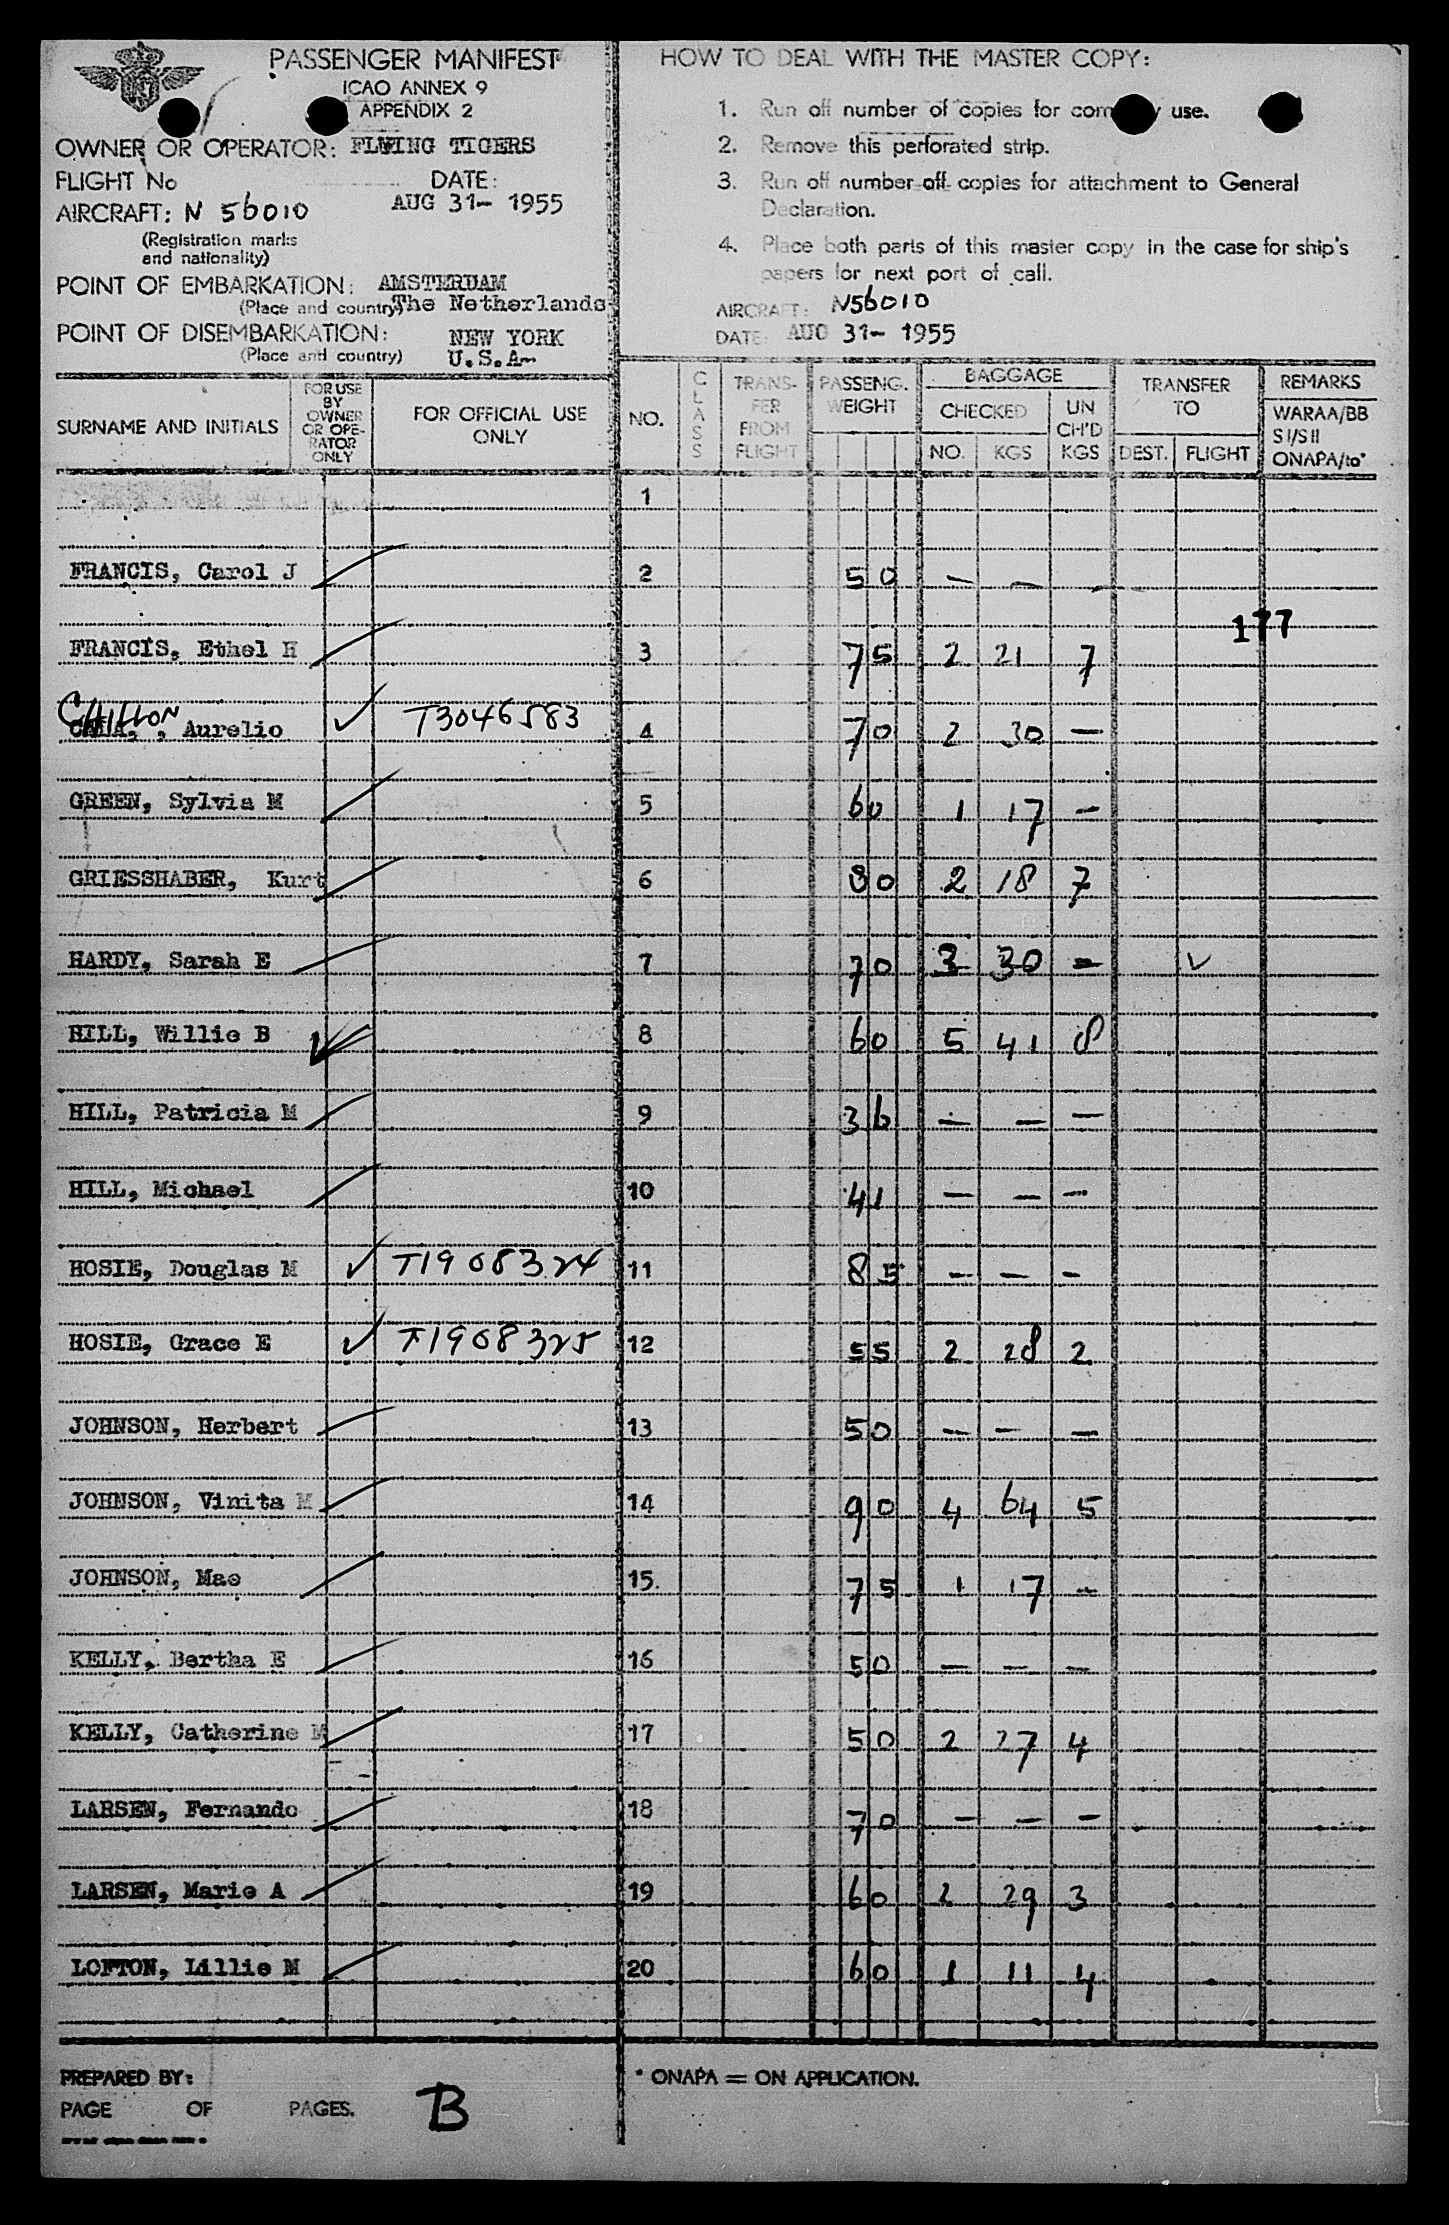 PASSENGER MANIFEST
ICAO ANNEX 9
APPENDIX 2
OWNER OR OPERATOR: FLYING TIGERS
FLIGHT No
DATE:
AUG 31- 1955
AIRCRAFT: N 56010
(Registration marks
and nationality)
POINT OF EMBARKATION: AMSTERDAM
(Place and country) The Netherlands
POINT OF DISEMBARKATION: NEW YORK
(Place and country) U.S.A-
HOW TO DEAL WITH THE MASTER COPY:
1. Run off number of copies for use.
2. Remove this perforated strip.
3. Run off number off copies for attachment to General
Declaration.
4. Place both parts of this master copy in the case for ship's
papers for next port of call.
AIRCRAFT: N56010
DATE: AUG 31- 1955
SURNAME AND INITIALS
FOR USE
BY
OWNER
OR OPE-
RATOR
ONLY
FOR OFFICIAL USE
ONLY
NO.
CLASS
TRANS-
FER
FROM
FLIGHT
PASSENG.
WEIGHT
BAGGAGE
CHECKED
NO. KGS
UN
CH'D
KGS
TRANSFER
TO
DEST. FLIGHT
REMARKS
WARAA/BB
SI/SII
ONAPA/to*
1
FRANCIS, Carol J 2 50 - - -
177
FRANCIS, Ethel H 3 75 2 21 7
CHILLON
, Aurelio T3046583 4 70 2 30 -
GREEN, Sylvia M 5 60 1 17 -
GRIESSHABER, Kurt 6 80 2 18 7
HARDY, Sarah E 7 70 3 30 - ✓
HILL, Willie B 8 60 5 41 8
HILL, Patricia M 9 36 - - -
HILL, Michael 10 41 - - -
HOSIE, Douglas M ✓ T1908324 11 85 - - -
HOSIE, Grace E ✓ T1908325 12 55 2 28 2
JOHNSON, Herbert 13 50 - - -
JOHNSON, Vinita M 14 90 4 64 5
JOHNSON, Mae 15. 75 1 17 -
KELLY, Bertha E 16 50 - - -
KELLY, Catherine M 17 50 2 27 4
LARSEN, Fernando 18 70 - - -
LARSEN, Marie A 19 60 2 29 3
LOFTON, Lillie M 20 60 1 11 4
PREPARED BY:
PAGE OF PAGES.
B
* ONAPA = ON APPLICATION.